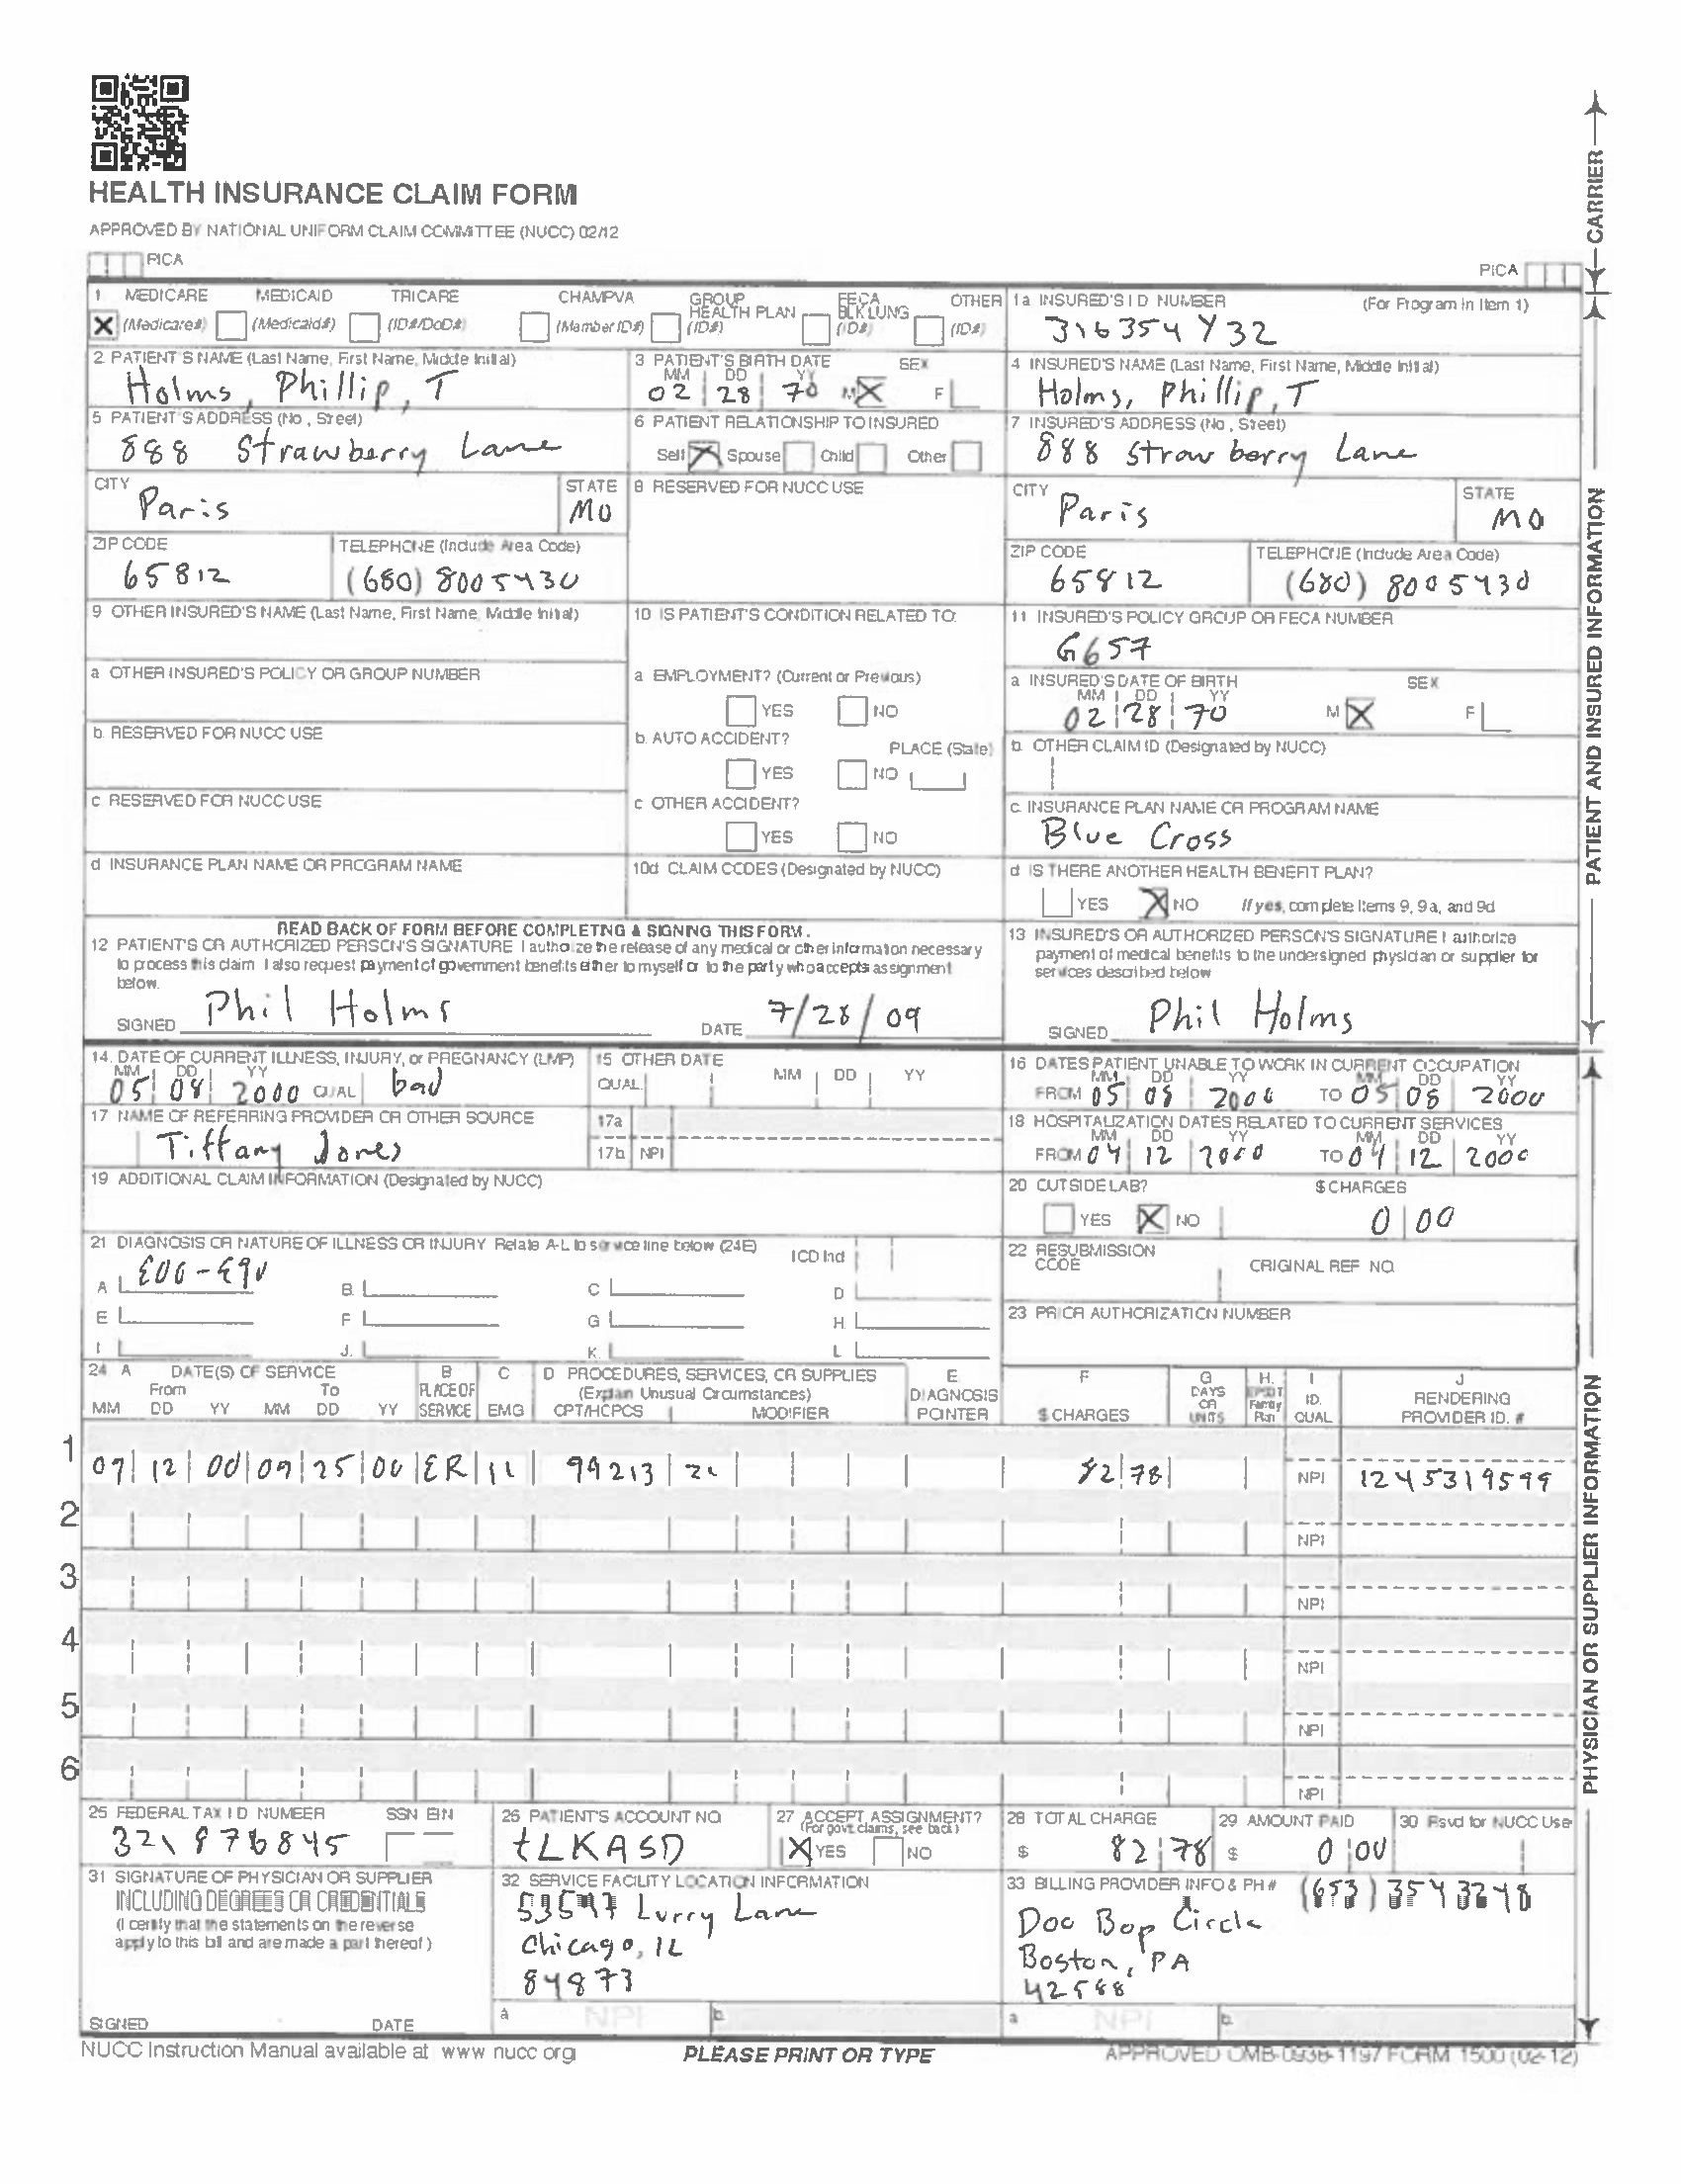 HEALTH INSURANCE CLAIM FORM
APPROVED BY NATIONAL UNIFORM CLAIM COMMITTEE (NUCC) 02/12
PICA PICA
CARRIER
1 MEDICARE MEDICAID TRICARE CHAMPVA GROUP HEALTH PLAN FECA BLK LUNG OTHER
X (Medicare#) (Medicaid#) (ID#/DoD#) (Member ID#) (ID#) (ID#) (ID#)
1a INSURED'S I D NUMBER (For Program in Item 1)
316354Y32
2 PATIENT'S NAME (Last Name, First Name, Middle Initial)
Holms, Phillip, T
3 PATIENT'S BIRTH DATE SEX
MM DD YY
02 28 70 M X F
4 INSURED'S NAME (Last Name, First Name, Middle Initial)
Holms, Phillip, T
5 PATIENT'S ADDRESS (No, Street)
888 Strawberry Lane
6 PATIENT RELATIONSHIP TO INSURED
Self X Spouse Child Other
7 INSURED'S ADDRESS (No, Street)
888 Strawberry Lane
CITY STATE
Paris MO
8 RESERVED FOR NUCC USE
CITY STATE
Paris MO
ZIP CODE TELEPHONE (Include Area Code)
65812 (680) 8005430
ZIP CODE TELEPHONE (Include Area Code)
65812 (680) 8005430
9 OTHER INSURED'S NAME (Last Name, First Name, Middle Initial)
10 IS PATIENT'S CONDITION RELATED TO:
11 INSURED'S POLICY GROUP OR FECA NUMBER
G657
a OTHER INSURED'S POLICY OR GROUP NUMBER
a EMPLOYMENT? (Current or Previous)
YES NO
a INSURED'S DATE OF BIRTH SEX
MM DD YY
02 28 70 M X F
b. RESERVED FOR NUCC USE
b. AUTO ACCIDENT? PLACE (State)
YES NO
b. OTHER CLAIM ID (Designated by NUCC)
c RESERVED FOR NUCC USE
c OTHER ACCIDENT?
YES NO
c. INSURANCE PLAN NAME OR PROGRAM NAME
Blue Cross
d INSURANCE PLAN NAME OR PROGRAM NAME
10d CLAIM CODES (Designated by NUCC)
d IS THERE ANOTHER HEALTH BENEFIT PLAN?
YES X NO If yes, complete Items 9, 9a, and 9d
PATIENT AND INSURED INFORMATION
READ BACK OF FORM BEFORE COMPLETING & SIGNING THIS FORM.
12 PATIENT'S OR AUTHORIZED PERSON'S SIGNATURE I authorize the release of any medical or other information necessary
to process this claim I also request payment of government benefits either to myself or to the party who accepts assignment
below.
SIGNED Phil Holms DATE 7/28/09
13 INSURED'S OR AUTHORIZED PERSON'S SIGNATURE I authorize
payment of medical benefits to the undersigned physician or supplier for
services described below
SIGNED Phil Holms
14. DATE OF CURRENT ILLNESS, INJURY, or PREGNANCY (LMP)
MM DD YY
05 08 2000 QUAL bad
15 OTHER DATE
QUAL MM DD YY
16 DATES PATIENT UNABLE TO WORK IN CURRENT OCCUPATION
MM DD YY MM DD YY
FROM 05 08 2000 TO 05 08 2000
17 NAME OF REFERRING PROVIDER OR OTHER SOURCE
Tiffany Jones
17a
17b NPI
18 HOSPITALIZATION DATES RELATED TO CURRENT SERVICES
MM DD YY MM DD YY
FROM 04 12 2000 TO 04 12 2000
19 ADDITIONAL CLAIM INFORMATION (Designated by NUCC)
20 OUTSIDE LAB? $ CHARGES
YES X NO 0 00
21 DIAGNOSIS OR NATURE OF ILLNESS OR INJURY Relate A-L to service line below (24E) ICD Ind
A E00-E90 B. C D
E F G H.
I J. K. L
22 RESUBMISSION CODE ORIGINAL REF NO
23 PRIOR AUTHORIZATION NUMBER
24 A DATE(S) OF SERVICE B C D PROCEDURES, SERVICES, OR SUPPLIES E F G H. I J
From To PLACE OF (Explain Unusual Circumstances) DIAGNOSIS DAYS OR UNITS EPSDT Family Plan ID. RENDERING
MM DD YY MM DD YY SERVICE EMG CPT/HCPCS MODIFIER POINTER $ CHARGES QUAL PROVIDER ID. #
1 07 12 00 09 25 00 ER 11 99213 82 78 NPI 1245319599
2 NPI
3 NPI
4 NPI
5 NPI
6 NPI
25 FEDERAL TAX I D NUMBER SSN EIN
321876845
26 PATIENT'S ACCOUNT NO
tLKASD
27 ACCEPT ASSIGNMENT?
(For govt. claims, see back)
X YES NO
28 TOTAL CHARGE
$ 82 78
29 AMOUNT PAID
$ 0 00
30 Rsvd for NUCC Use
31 SIGNATURE OF PHYSICIAN OR SUPPLIER
INCLUDING DEGREES OR CREDENTIALS
(I certify that the statements on the reverse
apply to this bill and are made a part thereof)
SIGNED DATE
32 SERVICE FACILITY LOCATION INFORMATION
Lurry Lane
Chicago, IL
84873
a NPI b.
33 BILLING PROVIDER INFO & PH # (653) 3543248
Doo Bop Circle
Boston, PA
42568
a NPI b.
PHYSICIAN OR SUPPLIER INFORMATION
NUCC Instruction Manual available at www nucc org
PLEASE PRINT OR TYPE
APPROVED OMB-0938-1197 FORM 1500 (02-12)